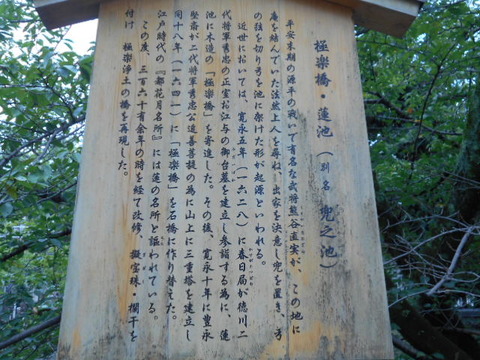 極楽橋・蓮池（別名 兜之池）
平安末期の源平の戦いで有名な武将熊谷直実が、この地に
庵を結んでいた法然上人を尋ね、出家を決意し兜を置き、弓
の弦を切り弓を池に架けた形が起源といわれる。
近世においては、寛永五年（一六二八）に春日局が徳川二
代将軍秀忠の正室お江与の御台墓を建立し参詣する為に、蓮
池に木造の「極楽橋」を寄進した。その後、寛永十年に豊永
堅斎が二代将軍秀忠公追善菩提の為に山上に三重塔を建立し
同十八年（一六四一）に「極楽橋」を石橋に作り替えた。
江戸時代の『都花月名所』には蓮の名所と謳われている。
この度、三百六十有余年の時を経て改修、擬宝珠・欄干を
付け 極楽浄土の橋を再現した。